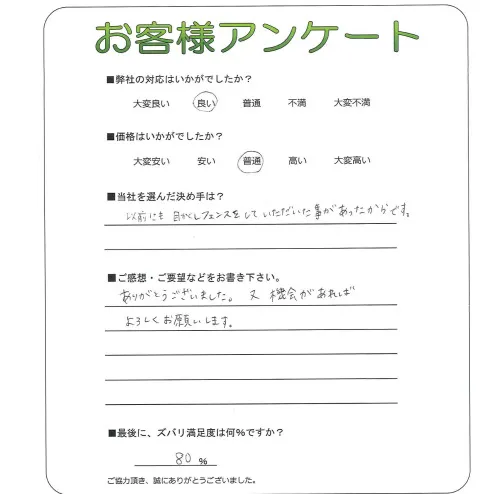 お客様アンケート
■弊社の対応はいかがでしたか?
大変良い 良い 普通 不満 大変不満
■価格はいかがでしたか?
大変安い 安い 普通 高い 大変高い
■当社を選んだ決め手は?
以前にも目かくしフェンスをしていただいた事があったからです。
■ご感想・ご要望などをお書き下さい。
ありがとうございました。又機会があれば
よろしくお願いします。
■最後に、ズバリ満足度は何%ですか?
80 %
ご協力頂き、誠にありがとうございました。